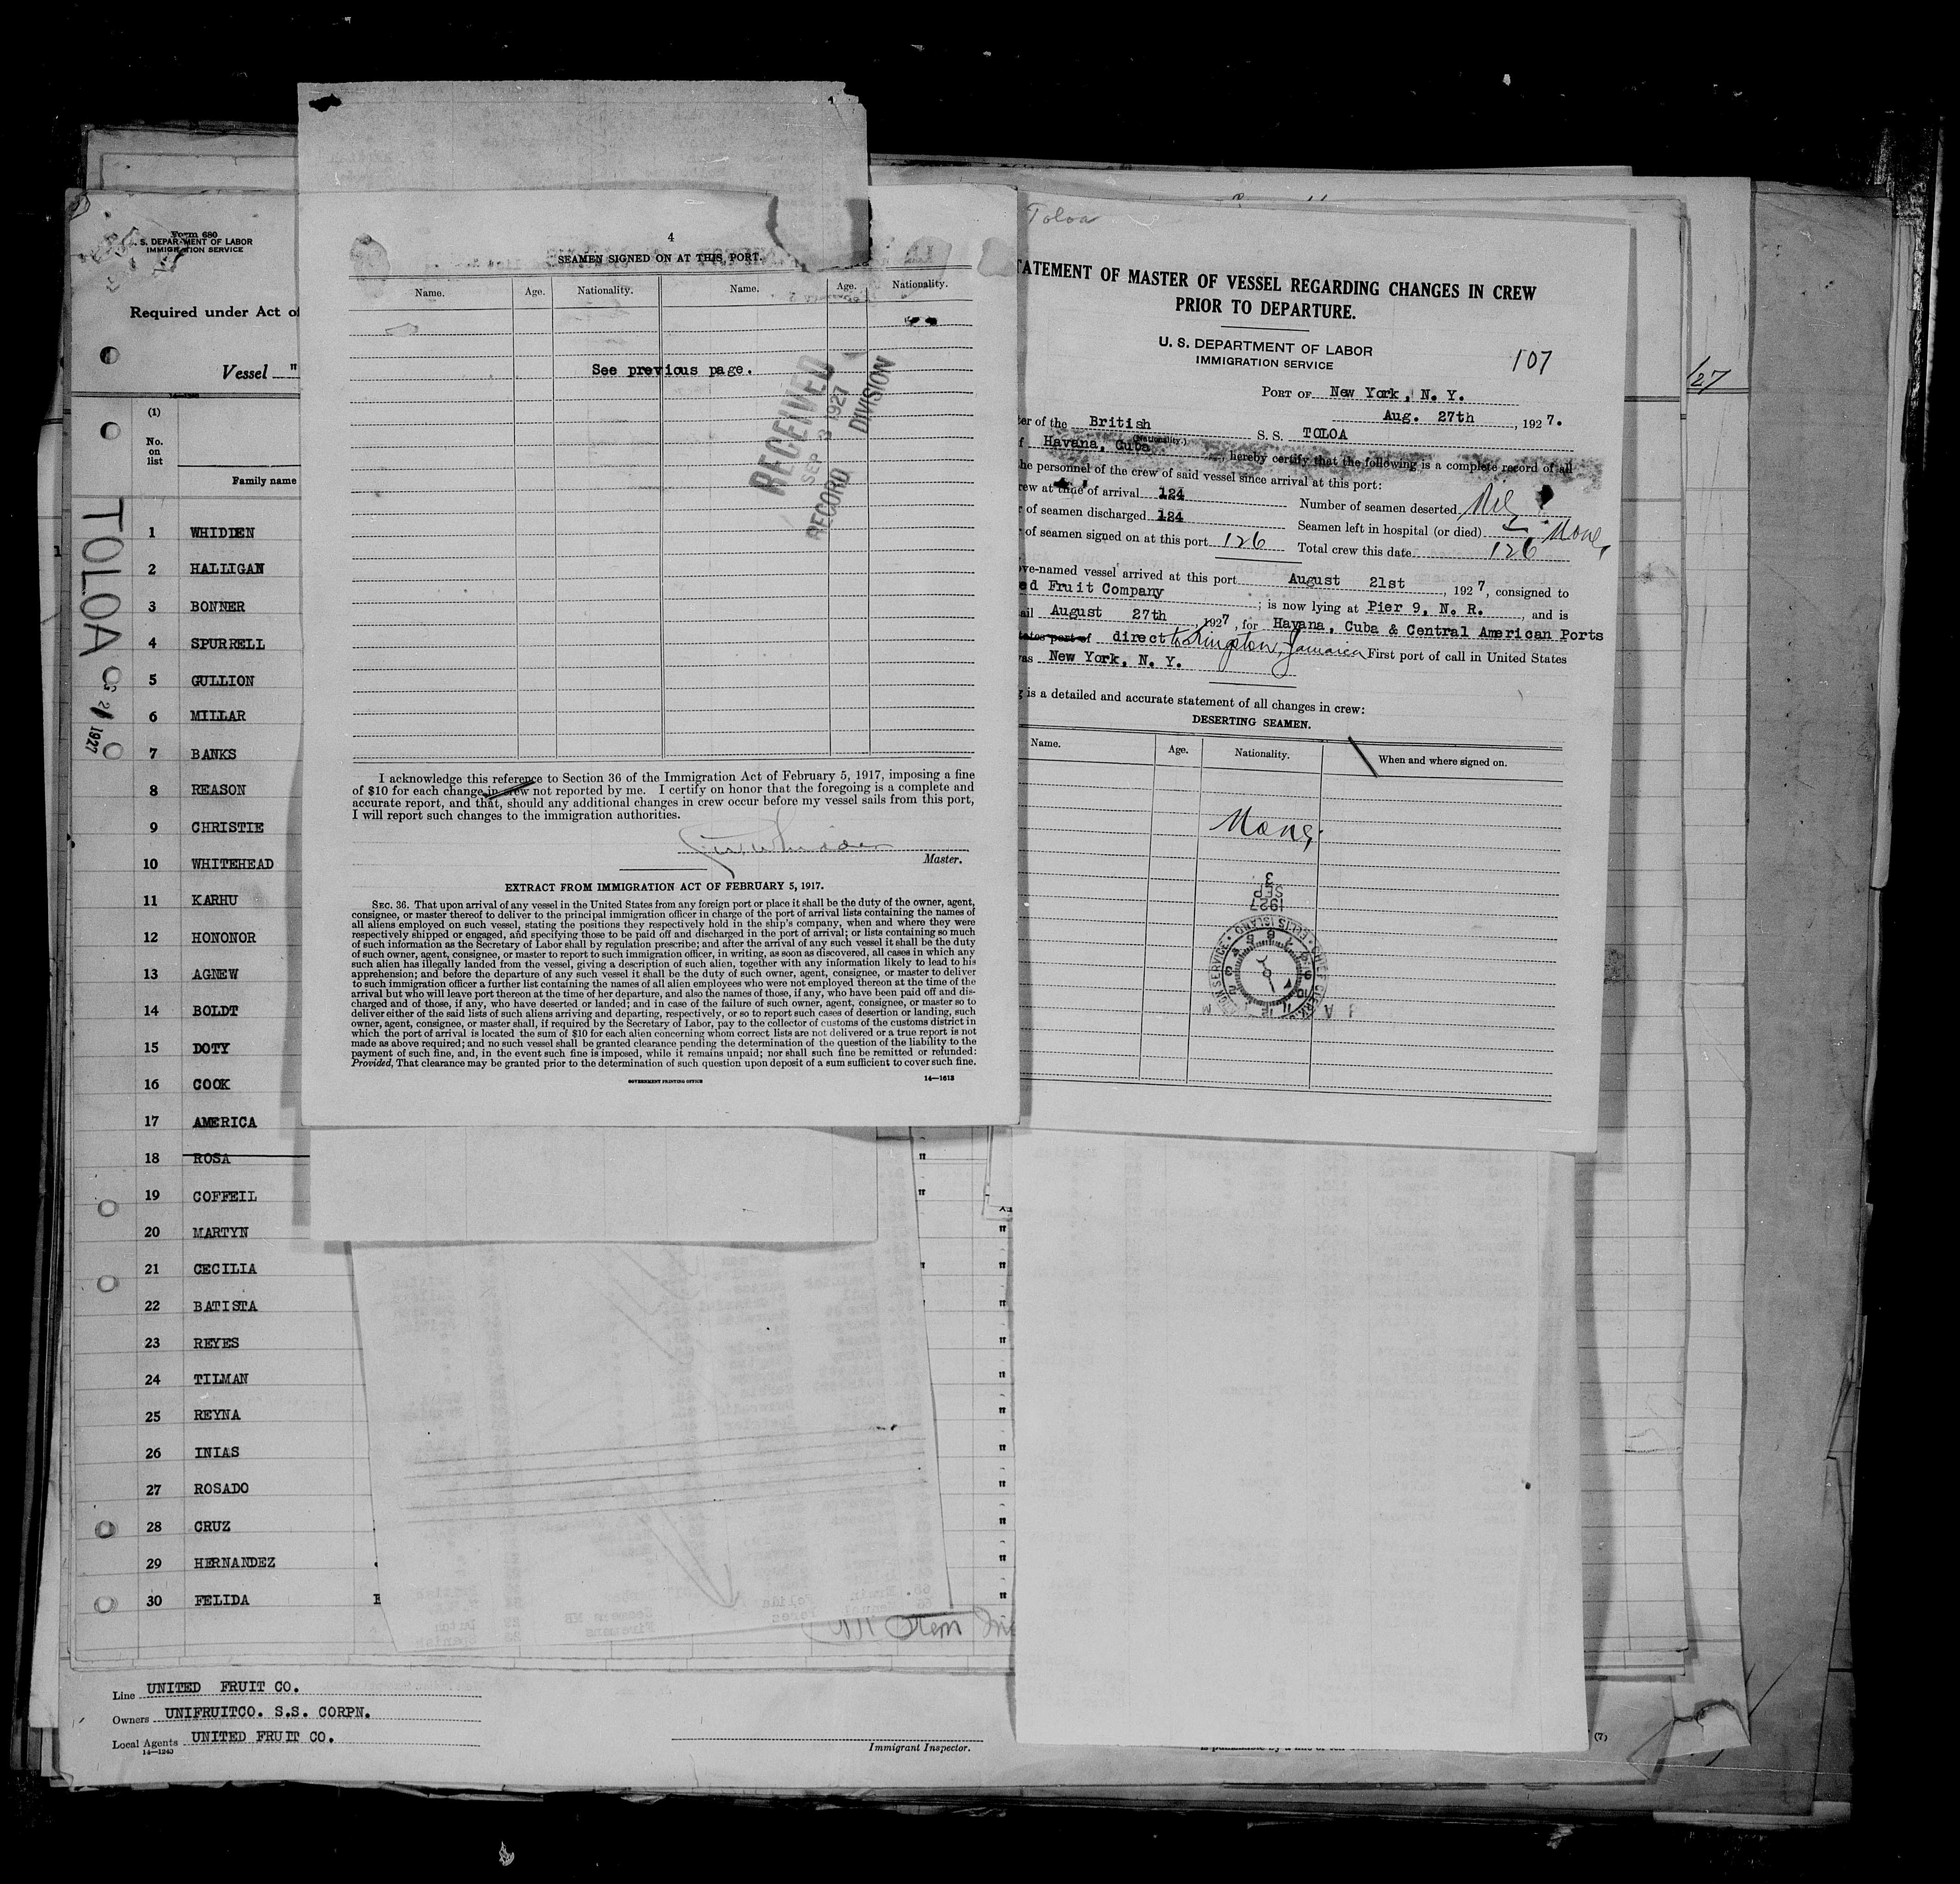 Form 680
S. DEPARTMENT OF LABOR
IMMIGRATION SERVICE
Required under Act of
Vessel "
(1)
No.
on
list
Family name
TOLOA
21 1927
1 WHIDDEN
2 HALLIGAN
3 BONNER
4 SPURRELL
5 GULLION
6 MILLAR
7 BANKS
8 REASON
9 CHRISTIE
10 WHITEHEAD
11 KARHU
12 HONONOR
13 AGNEW
14 BOLDT
15 DOTY
16 COOK
17 AMERICA
18 ROSA
19 COFFEIL
20 MARTYN
21 CECILIA
22 BATISTA
23 REYES
24 TILMAN
25 REYNA
26 INIAS
27 ROSADO
28 CRUZ
29 HERNANDEZ
30 FELIDA
Line UNITED FRUIT CO.
Owners UNIFRUITCO. S.S. CORPN.
Local Agents UNITED FRUIT CO.
14—1240
Immigrant Inspector.
4
SEAMEN SIGNED ON AT THIS PORT.
Name. Age. Nationality. Name. Age. Nationality.
See previous page.
RECEIVED
SEP 3 1927
RECORD DIVISION
I acknowledge this reference to Section 36 of the Immigration Act of February 5, 1917, imposing a fine
of $10 for each change in crew not reported by me. I certify on honor that the foregoing is a complete and
accurate report, and that, should any additional changes in crew occur before my vessel sails from this port,
I will report such changes to the immigration authorities.
Master.
EXTRACT FROM IMMIGRATION ACT OF FEBRUARY 5, 1917.
SEC. 36. That upon arrival of any vessel in the United States from any foreign port or place it shall be the duty of the owner, agent,
consignee, or master thereof to deliver to the principal immigration officer in charge of the port of arrival lists containing the names of
all aliens employed on such vessel, stating the positions they respectively hold in the ship's company, when and where they were
respectively shipped or engaged, and specifying those to be paid off and discharged in the port of arrival; or lists containing so much
of such information as the Secretary of Labor shall by regulation prescribe; and after the arrival of any such vessel it shall be the duty
of such owner, agent, consignee, or master to report to such immigration officer, in writing, as soon as discovered, all cases in which any
such alien has illegally landed from the vessel, giving a description of such alien, together with any information likely to lead to his
apprehension; and before the departure of any such vessel it shall be the duty of such owner, agent, consignee, or master to deliver
to such immigration officer a further list containing the names of all alien employees who were not employed thereon at the time of the
arrival but who will leave port thereon at the time of her departure, and also the names of those, if any, who have been paid off and dis-
charged and of those, if any, who have deserted or landed; and in case of the failure of such owner, agent, consignee, or master so to
deliver either of the said lists of such aliens arriving and departing, respectively, or so to report such cases of desertion or landing, such
owner, agent, consignee, or master shall, if required by the Secretary of Labor, pay to the collector of customs of the customs district in
which the port of arrival is located the sum of $10 for each alien concerning whom correct lists are not delivered or a true report is not
made as above required; and no such vessel shall be granted clearance pending the determination of the question of the liability to the
payment of such fine, and, in the event such fine is imposed, while it remains unpaid; nor shall such fine be remitted or refunded:
Provided, That clearance may be granted prior to the determination of such question upon deposit of a sum sufficient to cover such fine.
GOVERNMENT PRINTING OFFICE 14—1613
Toloa
TATEMENT OF MASTER OF VESSEL REGARDING CHANGES IN CREW
PRIOR TO DEPARTURE.
U. S. DEPARTMENT OF LABOR
IMMIGRATION SERVICE
107
PORT OF New York, N. Y.
Aug. 27th, 1927.
ter of the British S. S. TOLOA
(Nationality.)
f Havana, Cuba, hereby certify that the following is a complete record of all
he personnel of the crew of said vessel since arrival at this port:
rew at time of arrival 124 Number of seamen deserted Nil
r of seamen discharged 124 Seamen left in hospital (or died) None
of seamen signed on at this port 126 Total crew this date 126
ve-named vessel arrived at this port August 21st, 1927, consigned to
ed Fruit Company; is now lying at Pier 9, N. R., and is
ail August 27th 1927, for Havana, Cuba & Central American Ports
tates port of direct to Kingston, Jamaica First port of call in United States
as New York, N. Y.
g is a detailed and accurate statement of all changes in crew:
DESERTING SEAMEN.
Name. Age. Nationality. When and where signed on.
None
3
SEP
1927
ELLIS ISLAND
CHIEF CLERK
/27
(7)